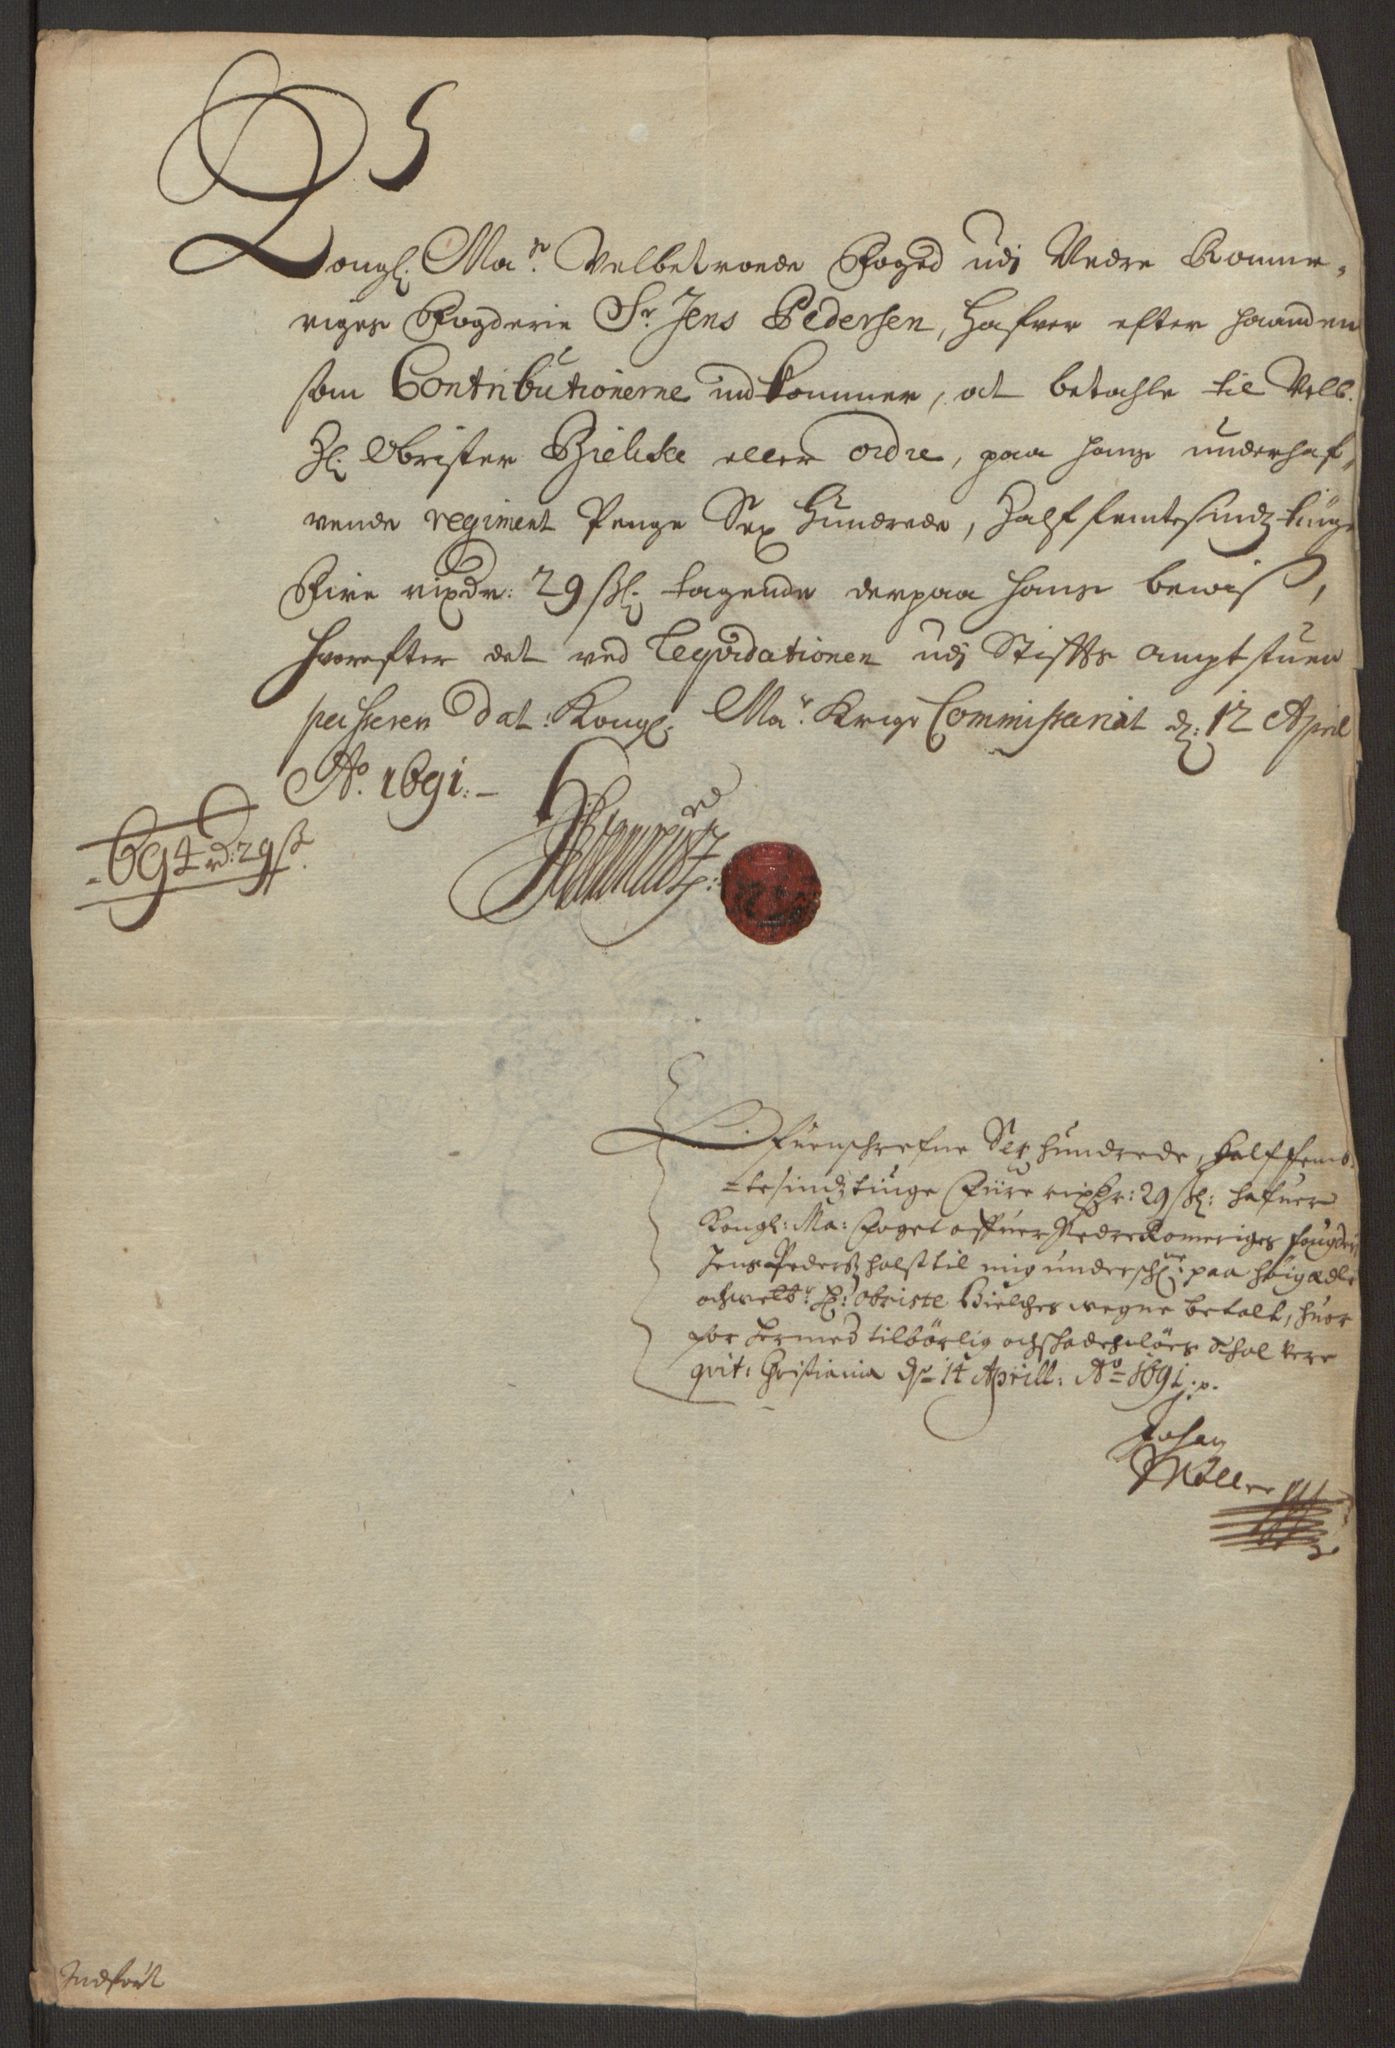 Kongl: Ma:ts Velbetroede Foged udj Nedre Romme-
riges Fogderie Sr. Jens Pedersen, hafver efter haanden
som Contributionerne indkommer, at betahle til Velb.
Hl: Obrister Bielche eller ordre, paa hans underhaf-
vende regiment Penge Sex Hundrede, halffemtesindztiuge
Fire rixdr: 29 sk: tagende derpaa hans bewiis,
hvorefter det ved Leqvidationen udj Stiffts amptstuen
passeren Dat: Kongl: Ma:ts Krigs Commissariat d: 12 April
Ao. 1691:-
694 rd: 29 s.
Ofuenschrefne Sex hundrede, halffem-
tesindztiuge Fiire rixdr: 29 sk: hafuer
Kongl: Ma: Foget offuer Nedre Romeriges fougderi
Jens Pederss: halst til mig undersch:ne paa høigædle
och velb:r H: Obriste Bielches wegne betalt, huor
for hermed tilbörlig och schadeslöes schal vere
qvit: Christiania d: 14 Aprill: Ao 1691 p.
Johan
Møller
Indført